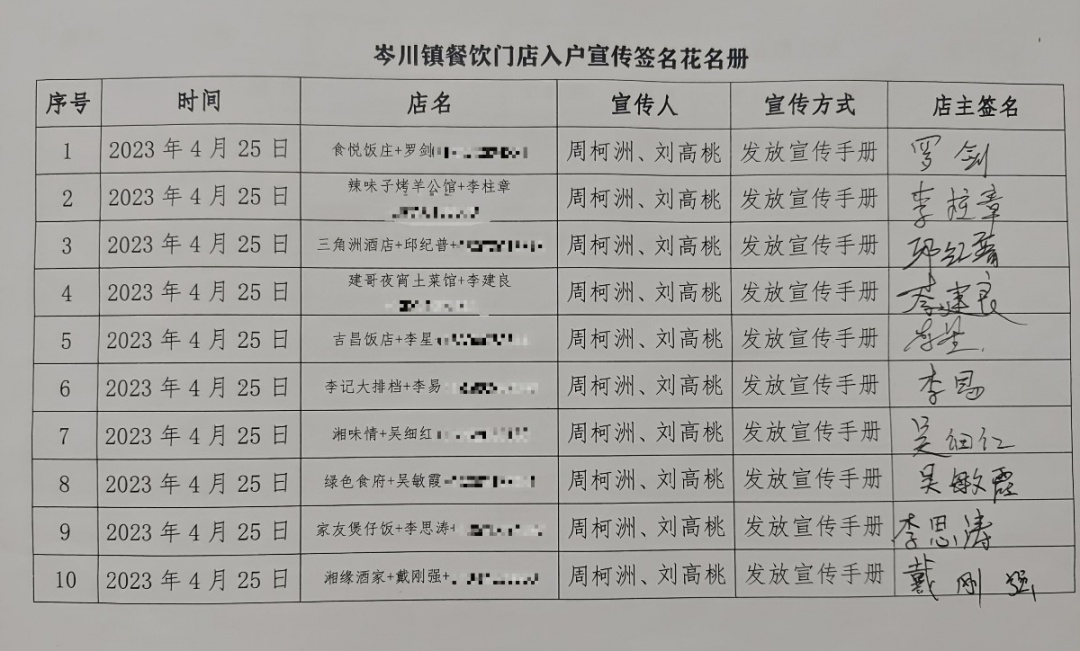 岑川镇餐饮门店入户宣传签名花名册
序号 时间 店名 宣传人 宣传方式 店主签名
1 2023年4月25日 食悦饭庄+罗剑 周柯洲、刘高桃 发放宣传手册 罗剑
2 2023年4月25日 辣味子烤羊公馆+李柱章 周柯洲、刘高桃 发放宣传手册 李柱章
3 2023年4月25日 三角洲酒店+邱纪普+ 周柯洲、刘高桃 发放宣传手册 邱纪普
4 2023年4月25日 建哥夜宵土菜馆+李建良 周柯洲、刘高桃 发放宣传手册 李建良
5 2023年4月25日 吉昌饭店+李星 周柯洲、刘高桃 发放宣传手册 李星
6 2023年4月25日 李记大排档+李易 周柯洲、刘高桃 发放宣传手册 李易
7 2023年4月25日 湘味情+吴细红 周柯洲、刘高桃 发放宣传手册 吴细红
8 2023年4月25日 绿色食府+吴敏霞 周柯洲、刘高桃 发放宣传手册 吴敏霞
9 2023年4月25日 家友煲仔饭+李思涛+ 周柯洲、刘高桃 发放宣传手册 李思涛
10 2023年4月25日 湘缘酒家+戴刚强+ 周柯洲、刘高桃 发放宣传手册 戴刚强